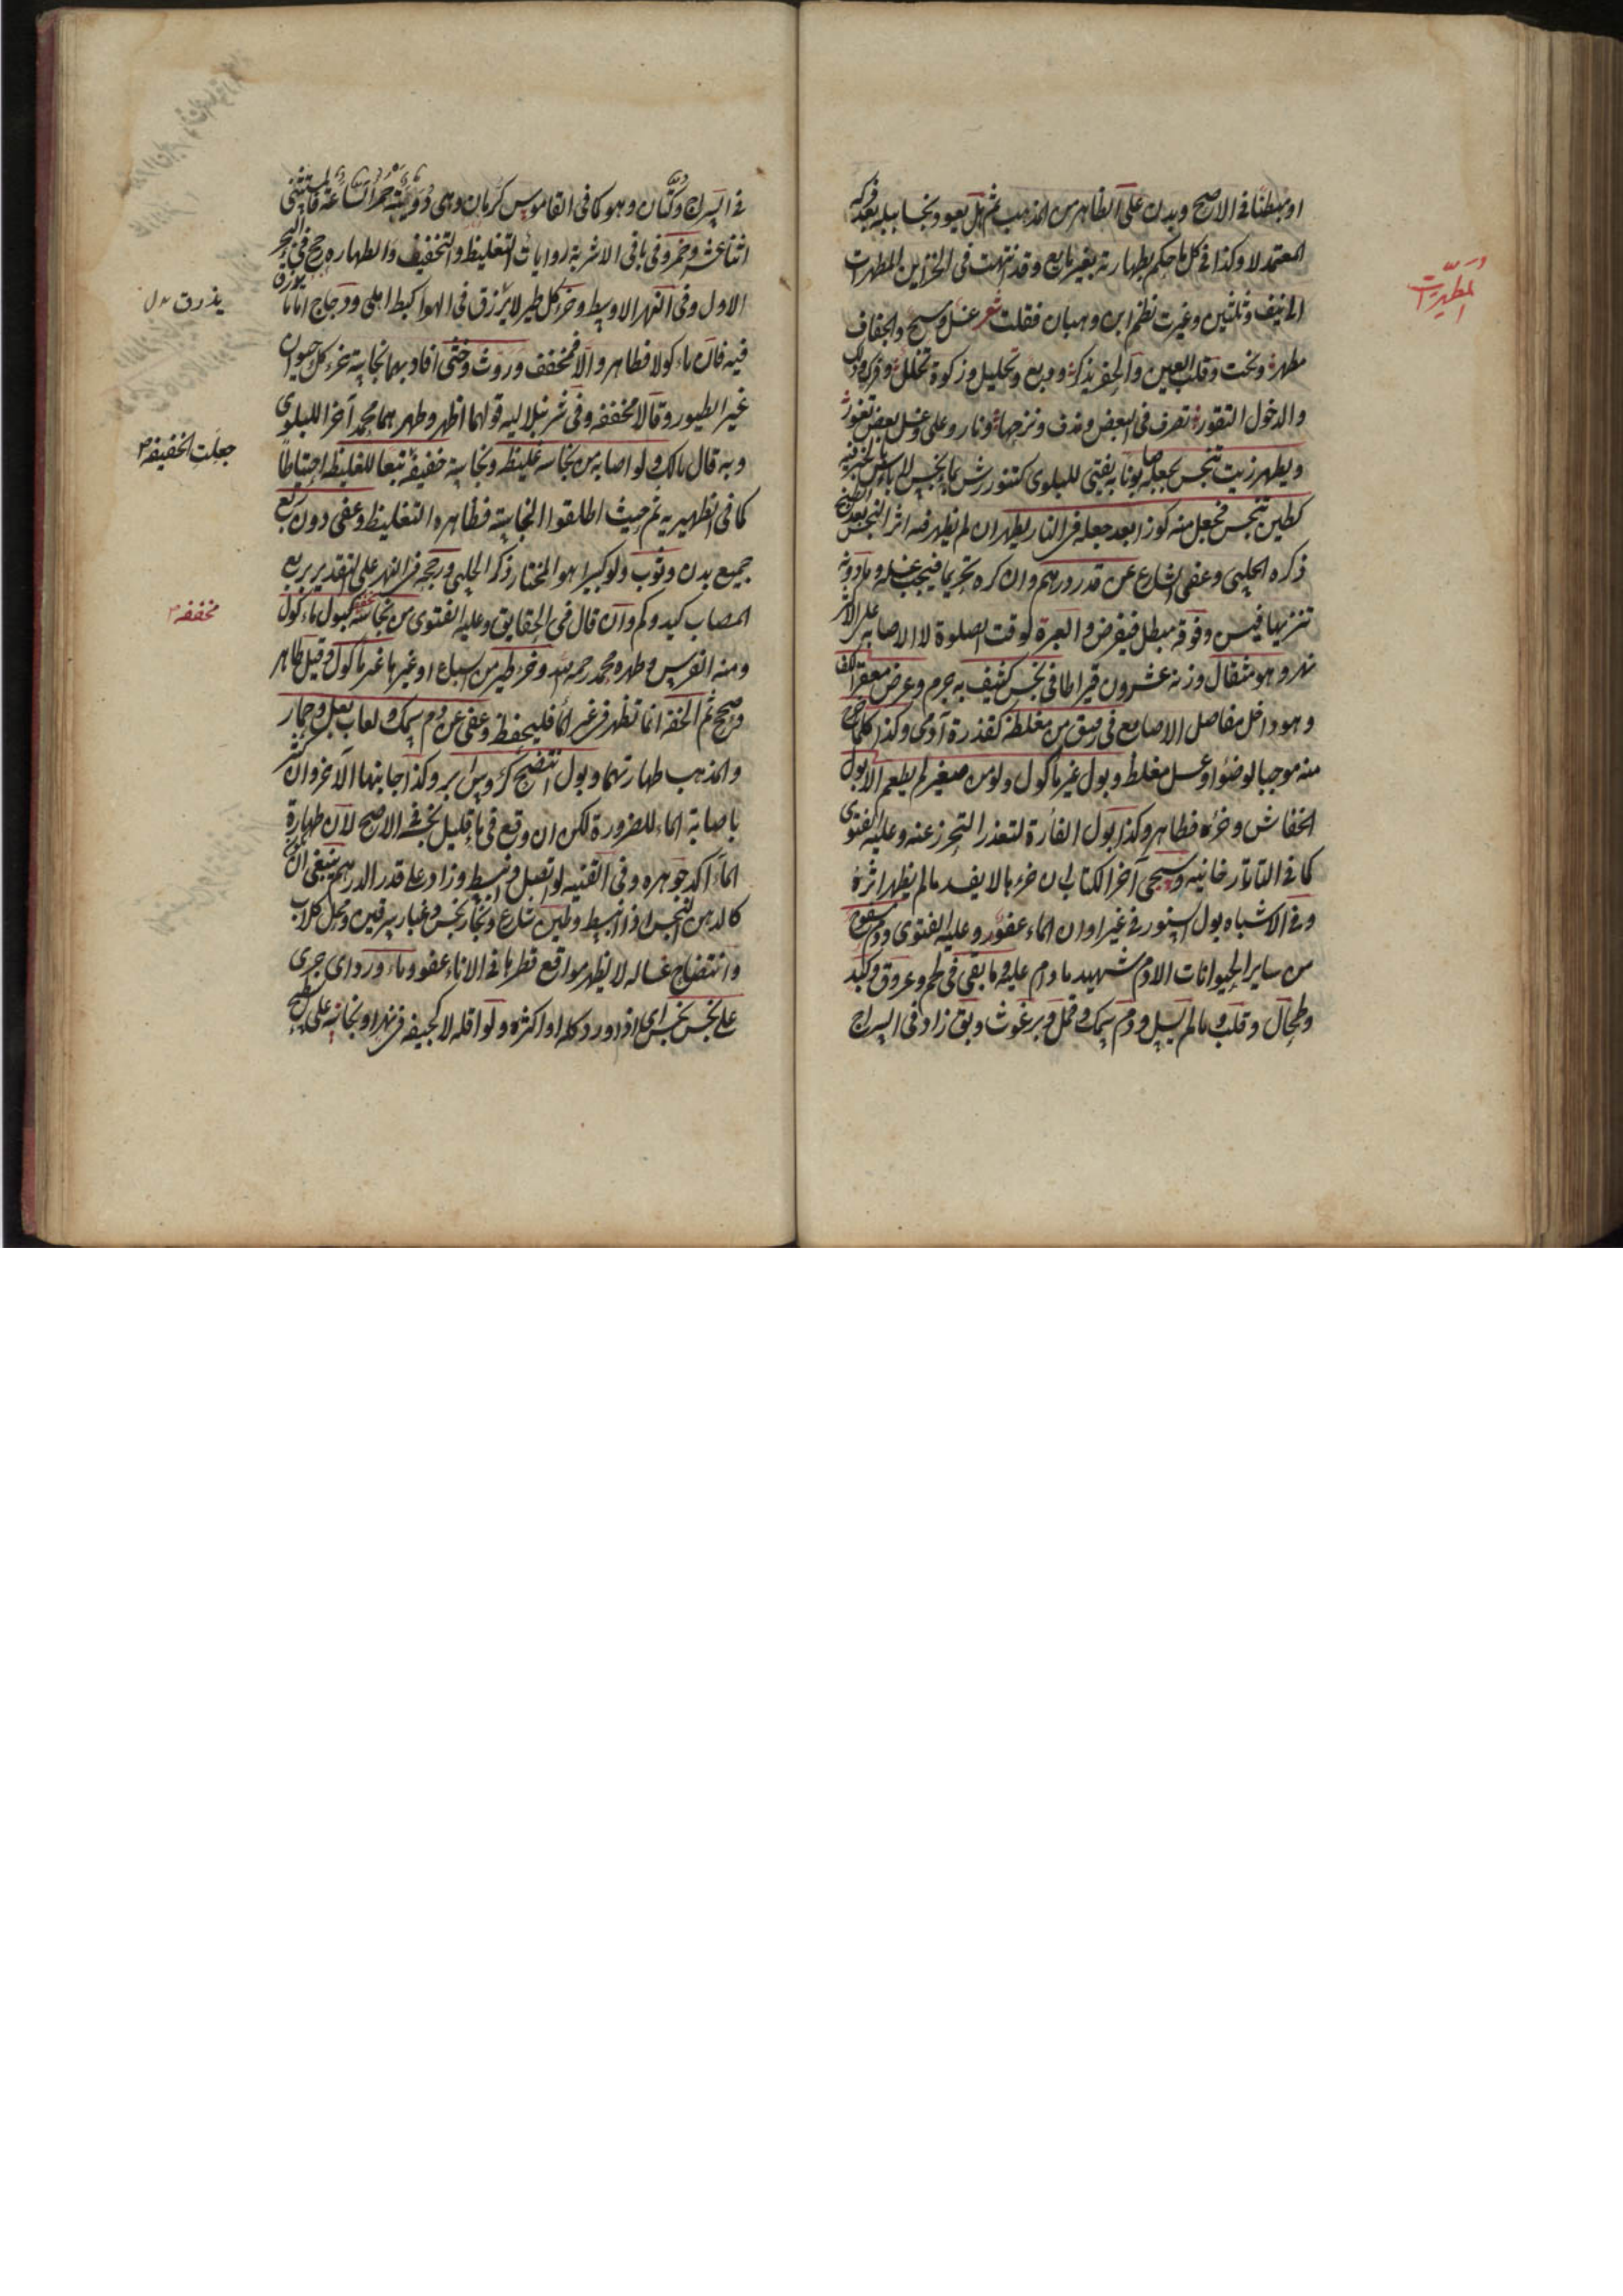 او مبطنا في الاصح وبدن على الظاهر من المذهب ثم هل يعود نجسا ببله بعد فركه
المعتمد لا وكذا في كل ما حكم بطهارته بغير مايع وقد انهيت في الخزاين المطهرات
المطهرات
الى نيف وثلثين وغيرت نظم ابن وهبان فقلت شعر غسل ومسح والجفاف
مطهر ونحت وقلب العين والحفر يذكر ودبع وتخليل وزكوة تخلل وفرك ودلك
والدخول التقور تصرف في البعض وندف ونزحها ونار وعلى وغسل بعض تقور
ويطهر زيت تنجس بجعله صابونا به يفتى للبلوى كتنور رش بماء نجس لا باس بالخبز فيه
كطين تنجس فجعل منه كوز بعد جعله في النار يطهر ان لم يظهر فيه اثر النجس بعد الطبخ
ذكره الحلبي وعفى الشارع عن قدر درهم وان كره تحريما فيجب غسله وما دونه
تنزيها فيسن وفوقه مبطل فيفرض والعبرة لوقت الصلوة لا الاصابه على الاكثر
نهر وهو مثقال وزنه عشرون قيراطا في نجس كثيف به جرم وعرض مقعر الكف
وهو داخل مفاصل الاصابع في رقيق من مغلظة كعذرة آدمي وكذا كلما خرج
منه موجبا لوضوء او غسل مغلظ وبول غير ماكول ولو من صغير لم يطعم الا بول
الخفاش وخرءه فطاهر وكذا بول الفارة لتعذر التحرز عنه وعليه الفتوى
كما في التاتار خانيه وسيجي آخر الكتاب ان خرءها لا يفسد ما لم يظهر اثره
وفي الاشباه بول السنور في غير اواني الماء عفو وعليه الفتوى ودم مسفوح
من ساير الحيوانات الا دم شهيد ما دام عليه وما بقي في لحم وعروق وكبد
وطحال وقلب وما لم يسل ودم سمك وقمل وبرغوث وبق زاد في السراج
في السراج وكتان وهو كما في القاموس كرمان وهي دويبة حمراء لساعة فالمستثنى
اثنا عشر وخمر وفي باقي الاشربة روايات التغليظ والتخفيف والطهارة رجح في البحر
الاول وفي النهر الاوسط وخرء كل طير لا يذرق في الهوا كبط اهلي ودجاج اما ما
يذرق
فيه فان ماكولا فطاهر والا فمخفف وروث وخثى افاد بهما نجاسة خرء كل حيوان
غير الطيور وقالا مخففه وفي شرنبلاليه قولهما اظهر وطهرهما محمد آخرا للبلوى
وبه قال مالك ولو اصابه من نجاسه غليظه ونجاسة خفيفة تبعا للغليظ احتياطا
جعلت الخفيفه
كما في الظهيريه ثم حيث اطلقوا النجاسة فظاهره التغليظ وعفى دون ربع
جميع بدن وثوب ولو كبيرا هو المختار ذكره الحلبي ورجحه في النهر على التقدير بربع
المصاب كيد وكم وان قال في الحقايق وعليه الفتوى من نجاسة مخففه كبول ماكول
مخففه
ومنه الفرس وطهره محمد رحمه الله وخرء طير من السباع او غيرها غير ماكول وقيل طاهر
وصحح ثم الخفه انما تظهر في غير الماء فليحفظ وعفى عن دم سمك ولعاب بغل وحمار
والمذهب طهارتهما وبول انتضح كرؤس ابر وكذا جانبها الآخر وان كثر
باصابة الماء للضرورة لكن ان وقع في ماء قليل نجسه في الاصح لان طهارة
الماء آكد جوهره وفي القنيه لو اتصل وانبسط وزاد على قدر الدرهم ينبغي ان يكون
كالدهن النجس اذا انبسط وطين شارع وبخار نجس وغبار سرقين ومحل كلاب
وانتضاح غساله لا يظهر مواقع قطرها في الاناء عفو وماء ورد اي جرى
على نجس نجس اي اذا ورد كله او اكثره ولو اقله لا كجيفه في نهر او نجاسه على سطح